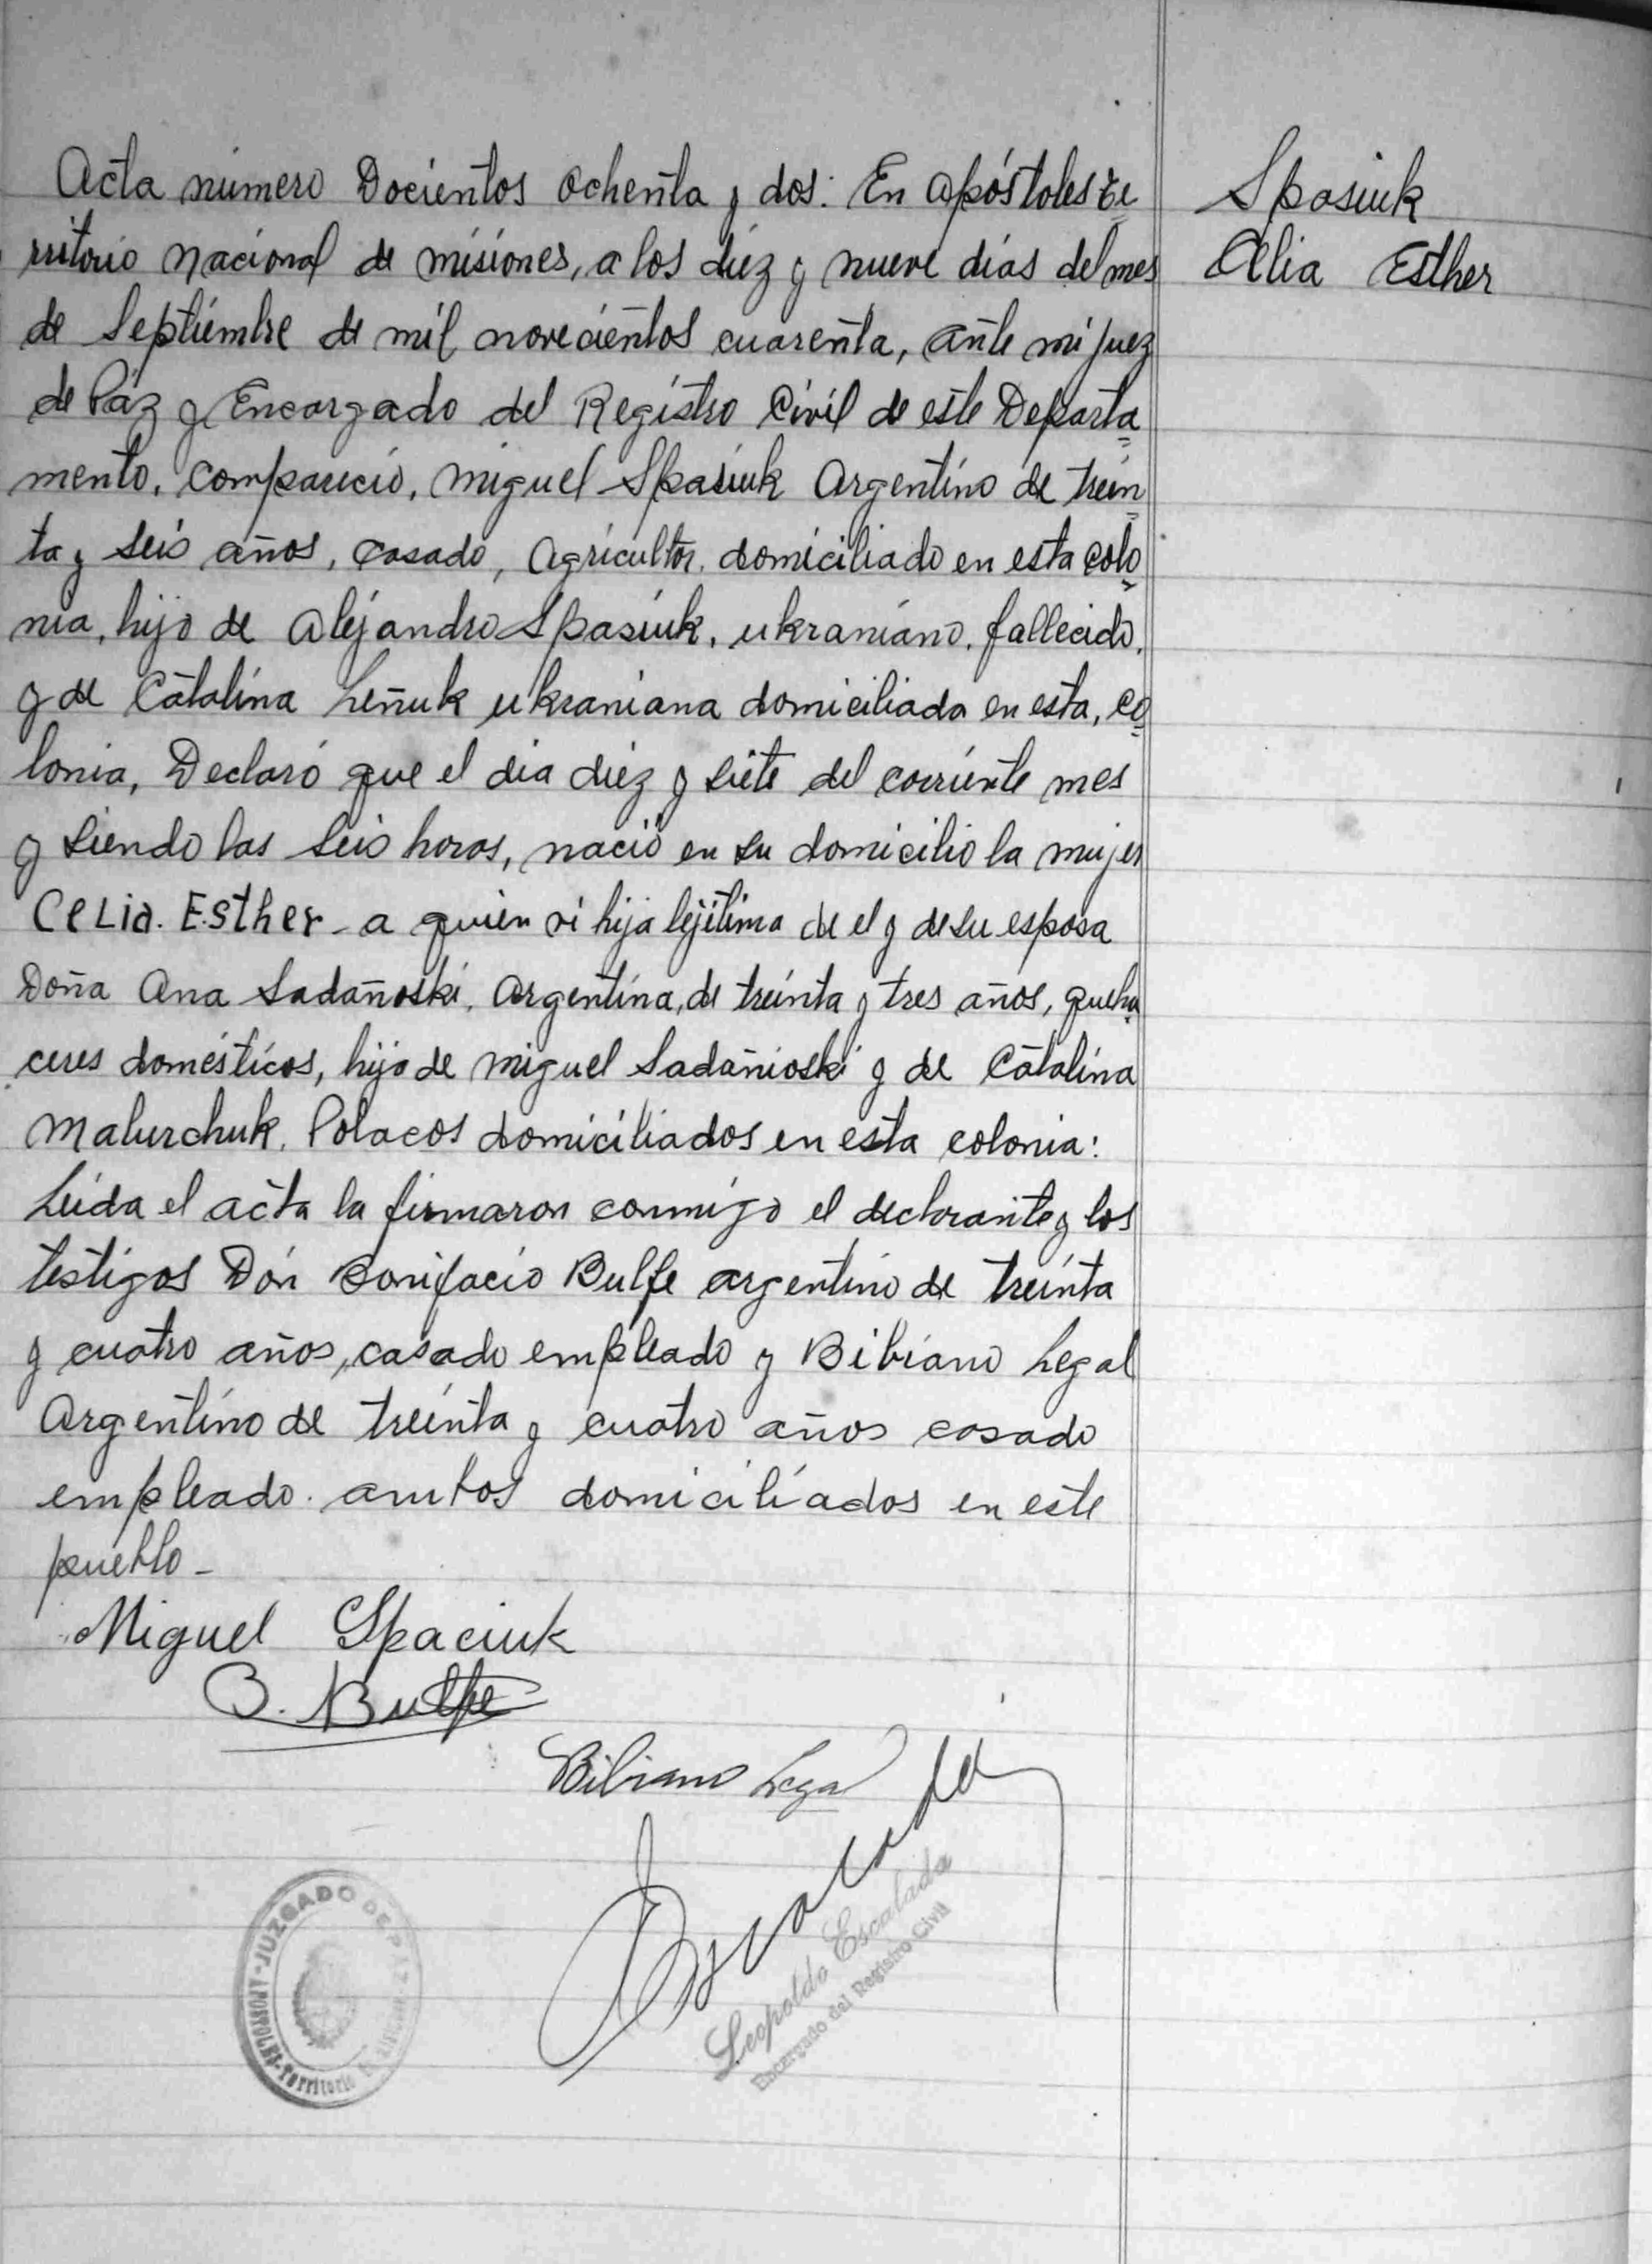 Acta número Docientos Ochenta y dos: En Apóstoles Te
rritorio Nacional de Misiones, a los diez y nueve días del mes
de Septiembre de mil novecientos cuarenta, ante mi Juez
de Paz y Encargado del Registro Civil de este Departa
mento, compareció, Miguel Spasiuk Argentino de trein
ta y seis años, casado, Agricultor, domiciliado en esta colo
nia, hijo de Alejandro Spasiuk, ukraniano, fallecido,
y de Catalina Leñuk ukraniana domiciliada en esta, co
lonia, Declaró que el dia diez y siete del corriente mes
y siendo las seis horas, nació en su domicilio la mujer
Celia. Esther - a quien vi hija lejítima de el y de su esposa
Doña Ana Sadañoski, Argentina, de treinta y tres años, queha
ceres domésticos, hija de Miguel Sadañioski y de Catalina
Malurchuk, Polacos domiciliados en esta colonia:
Leida el acta la firmaron conmigo el declarante y los
testigos Don Bonifacio Bulfe argentino de treinta
y cuatro años, casado empleado y Bibiano Legal
Argentino de treinta y cuatro años casado
empleado. ambos domiciliados en este
pueblo -
Spasiuk
Celia Esther
Miguel Spaciuk
B. Bulfe
Bibiano Legal
Escalada
Leopoldo Escalada
Encargado del Registro Civil
JUZGADO DE PAZ
APOSTOLES - Territorio